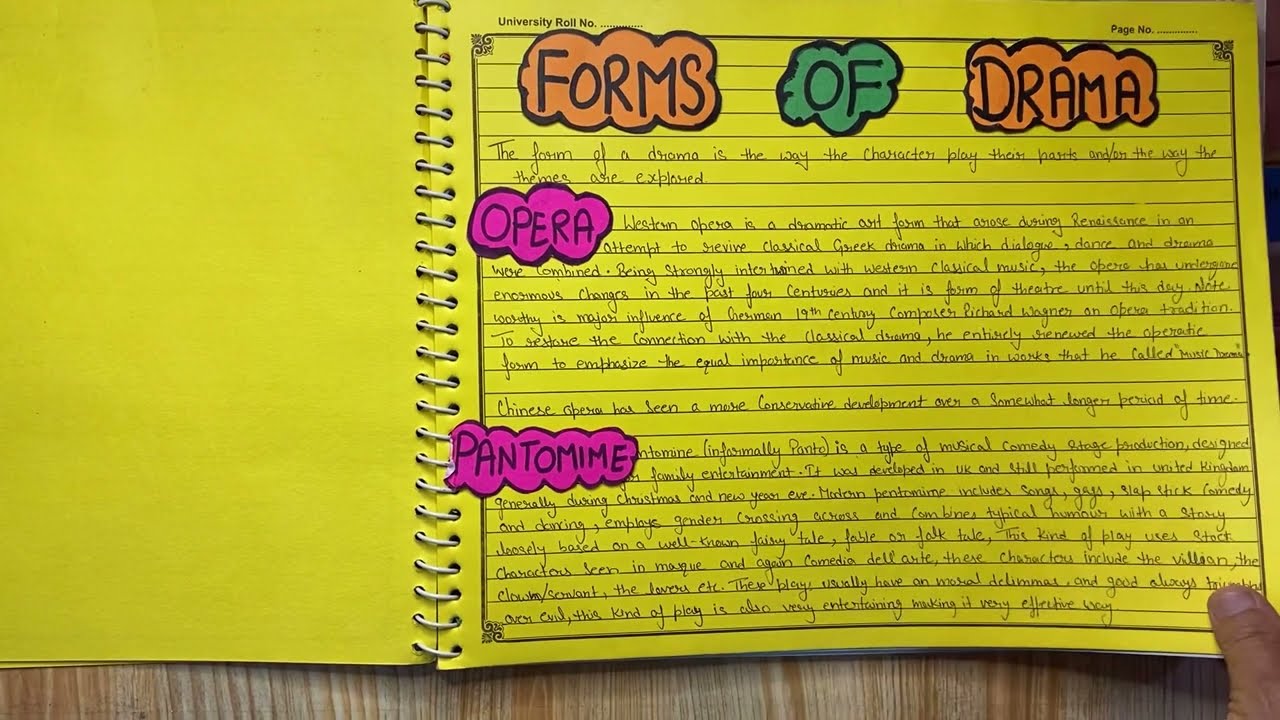 University Roll No. ..............
Page No. ..............
FORMS OF DRAMA
The form of a drama is the way the character play their parts and/or the way the
themes are explored.
OPERA
Western opera is a dramatic art form that arose during Renaissance in an
attempt to revive classical Greek drama in which dialogue, dance and drama
were combined. Being strongly intertwined with western classical music, the opera has undergone
enormous changes in the past four centuries and it is form of theatre until this day. Note
worthy is major influence of German 19th century composer Richard Wagner on opera tradition.
To restore the connection with the classical drama, he entirely renewed the operatic
form to emphasize the equal importance of music and drama in works that he called "Music Drama"
Chinese opera has seen a more conservative development over a somewhat longer period of time.
PANTOMIME
ntomime (informally Panto) is a type of musical comedy stage production, designed
r family entertainment. It was developed in UK and still performed in united kingdom
generally during christmas and new year eve. Modern pentomime includes songs, gags, slap stick comedy
and dancing, employs gender crossing across and combines typical humour with a story
loosely based on a well-known fairy tale, fable or folk tale, This kind of play uses stock
characters seen in masque and again comedia dell'arte, these characters include the villian, the
clown/servant, the lovers etc. These plays usually have an moral delimmas. and good always
over evil, this kind of play is also very entertaining making it very effective way